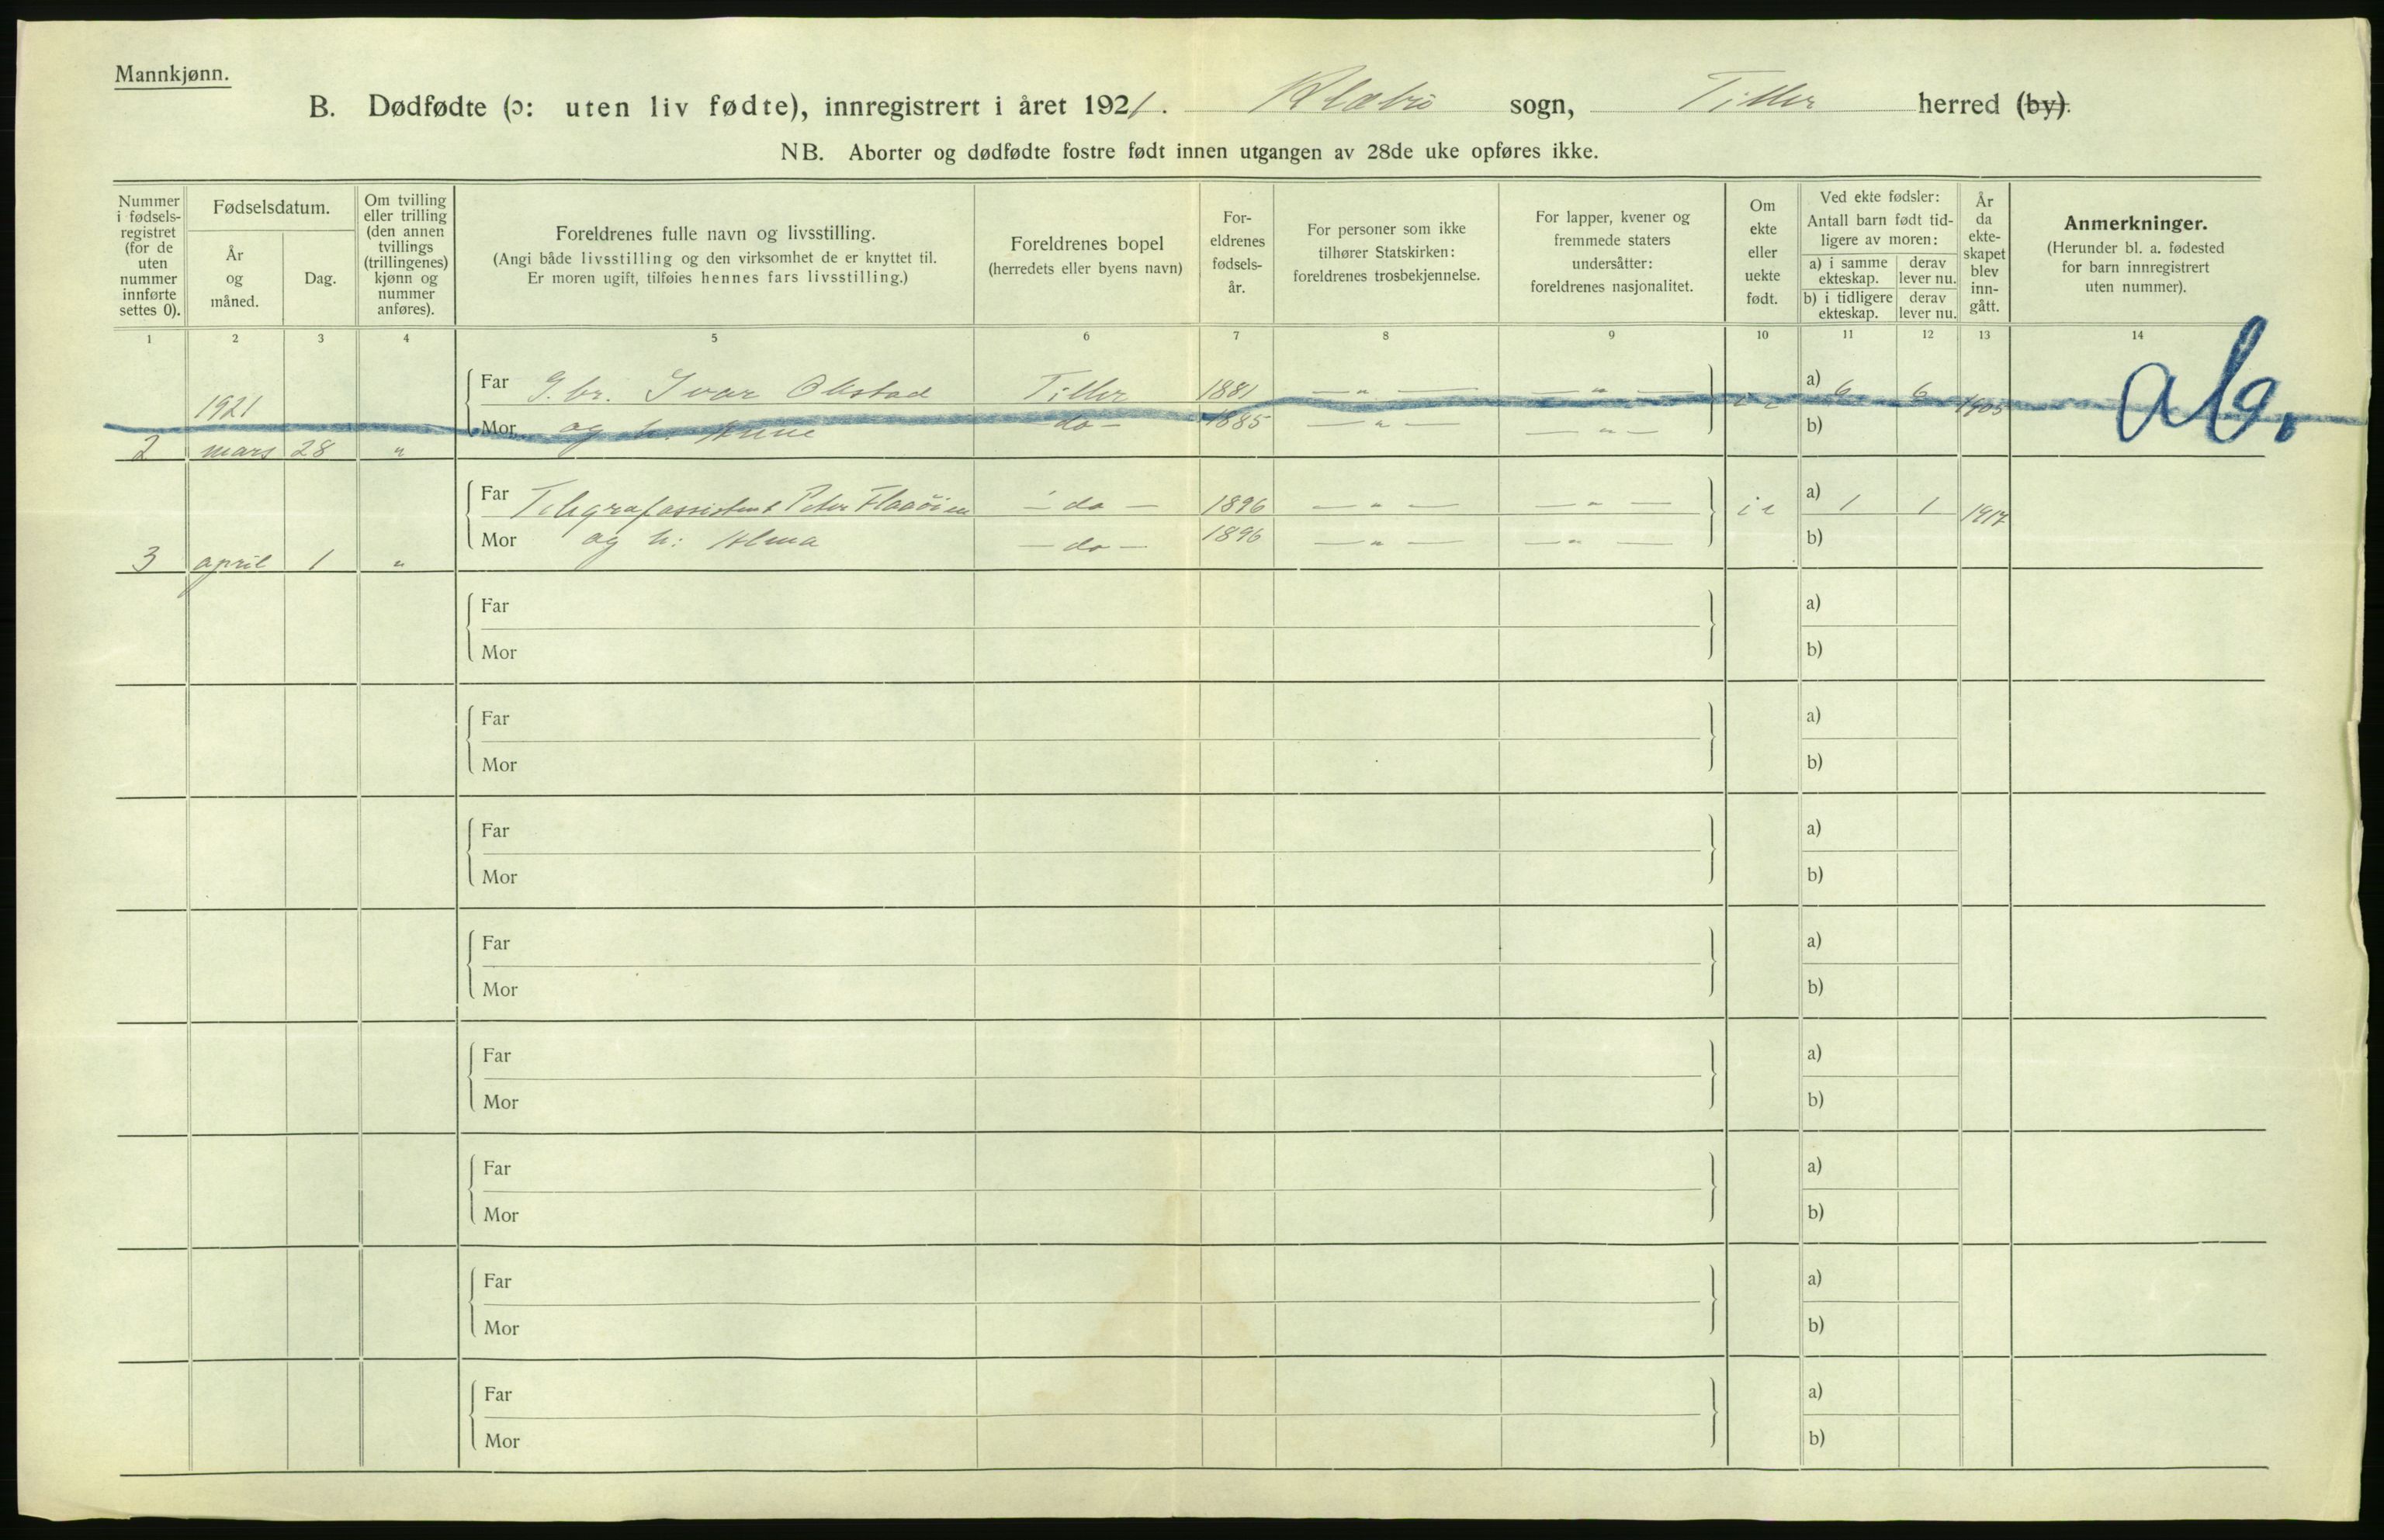 Mannkjønn.
B. Dødfødte (ɔ: uten liv fødte), innregistrert i året 1921. Klæbu sogn, Tiller herred (by).
NB. Aborter og dødfødte fostre født innen utgangen av 28de uke opføres ikke.
Nummer i fødsels-registret (for de uten nummer innførte settes 0).
Fødselsdatum.
År og måned.
Dag.
Om tvilling eller trilling (den annen tvillings (trillingenes) kjønn og nummer anføres).
Foreldrenes fulle navn og livsstilling.
(Angi både livsstilling og den virksomhet de er knyttet til.
Er moren ugift, tilføies hennes fars livsstilling.)
Foreldrenes bopel
(herredets eller byens navn)
For-eldrenes fødsels-år.
For personer som ikke tilhører Statskirken: foreldrenes trosbekjennelse.
For lapper, kvener og fremmede staters undersåtter: foreldrenes nasjonalitet.
Om ekte eller uekte født.
Ved ekte fødsler:
Antall barn født tid-ligere av moren:
a) i samme ekteskap. derav lever nu.
b) i tidligere ekteskap. derav lever nu.
År da ekte-skapet blev inn-gått.
Anmerkninger.
(Herunder bl. a. fødested for barn innregistrert uten nummer).
1 2 3 4 5 6 7 8 9 10 11 12 13 14
Far G.br. Ivar Tiller 1881 — " — — " — a) 6 6 1905 ab.
1921
Mor og h. do — 1885 — " — — " — b)
2 mars 28 "
Far Telegrafassistent Peter — do — 1896 — " — — " — a) 1 1 1917
Mor og h: Alma — do — 1896 — " — — " — b)
3 april 1 "
Far a)
Mor b)
Far a)
Mor b)
Far a)
Mor b)
Far a)
Mor b)
Far a)
Mor b)
Far a)
Mor b)
Far a)
Mor b)
Far a)
Mor b)